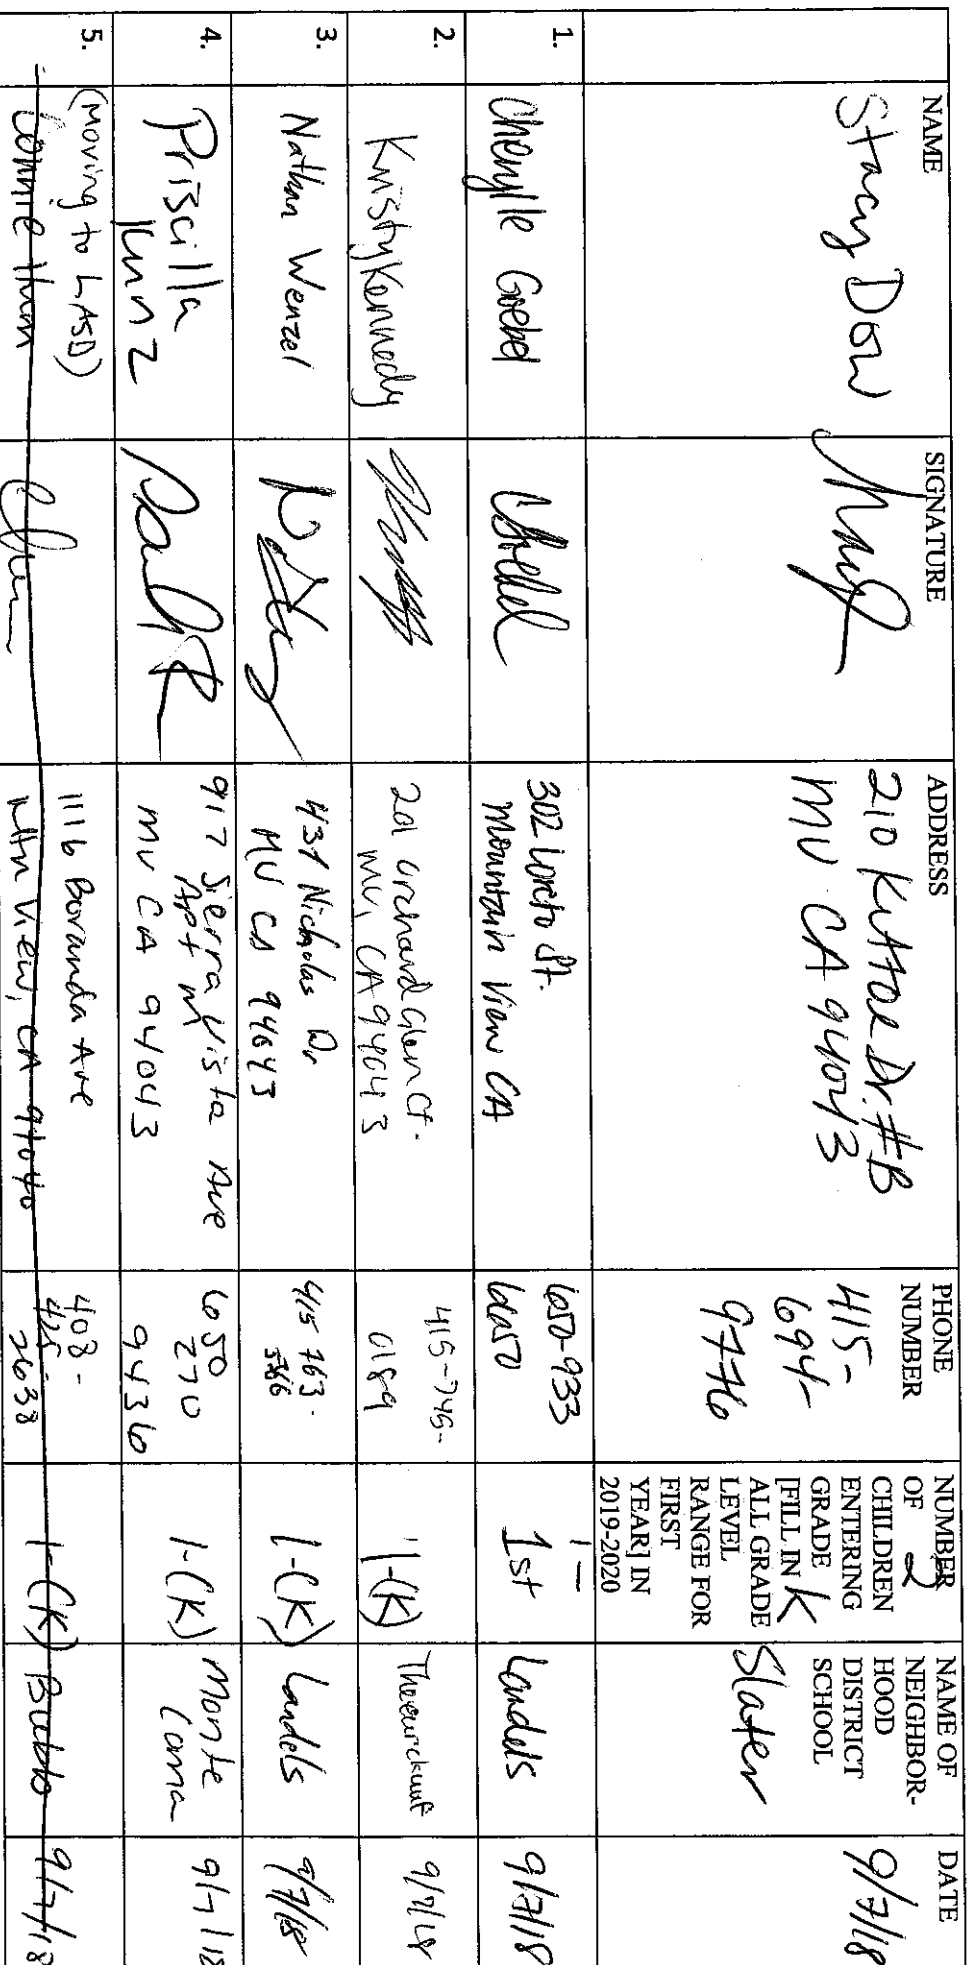 NAME
SIGNATURE
ADDRESS
PHONE
NUMBER
NUMBER
OF 2
CHILDREN
ENTERING
GRADE K
[FILL IN
ALL GRADE
LEVEL
RANGE FOR
FIRST
YEAR] IN
2019-2020
NAME OF
NEIGHBOR-
HOOD
DISTRICT
SCHOOL
DATE
Stacy Dow
210 Kittoe Dr. #B
MV CA 94043
415-
694-
9776
Slater
9/7/18
1.
Cherylle Goebel
302 Loreto St.
Mountain View CA
650-933
6050
1 -
1st
Landels
9/7/18
2.
Kristy Kennedy
201 Orchard Glen Ct.
MV, CA 94043
415-745-
0189
1-(K)
Theuerkauf
9/7/18
3.
Nathan Wenzel
431 Nicholas Dr
MV CA 94043
415-763-
1-(K)
Landels
9/7/18
4.
Priscilla
Kunz
917 Sierra Vista Ave
Apt M
MV CA 94043
650
270
9436
1-(K)
Monte
Loma
9/7/18
5.
(Moving to LASD)
Connie
1116 Boranda Ave
Mtn View, CA 94040
408-
2638
1-(K)
Bubb
9/7/18